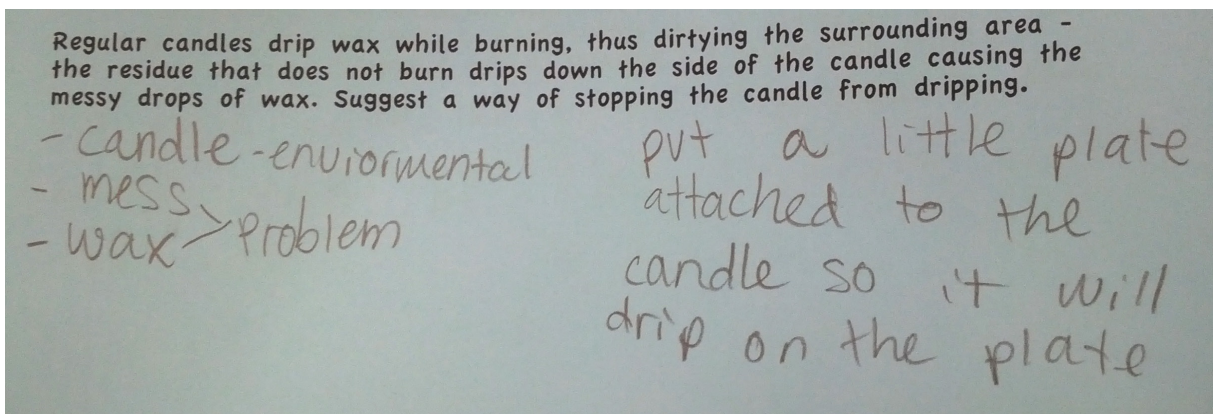 Regular candles drip wax while burning, thus dirtying the surrounding area -
the residue that does not burn drips down the side of the candle causing the
messy drops of wax. Suggest a way of stopping the candle from dripping.
- candle - enviormental
- mess
- wax > problem
put a little plate
attached to the
candle so it will
drip on the plate